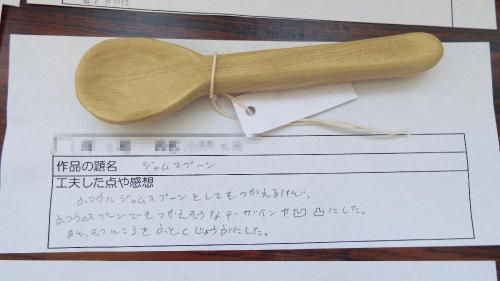 作品の題名 ジャムスプーン
工夫した点や感想
ふつうにジャムスプーンとしてもつかえるけど、
ふつうのスプーンでもつかえそうなデザインや凹凸にした。
あと、もつところをふとくじょうぶにした。